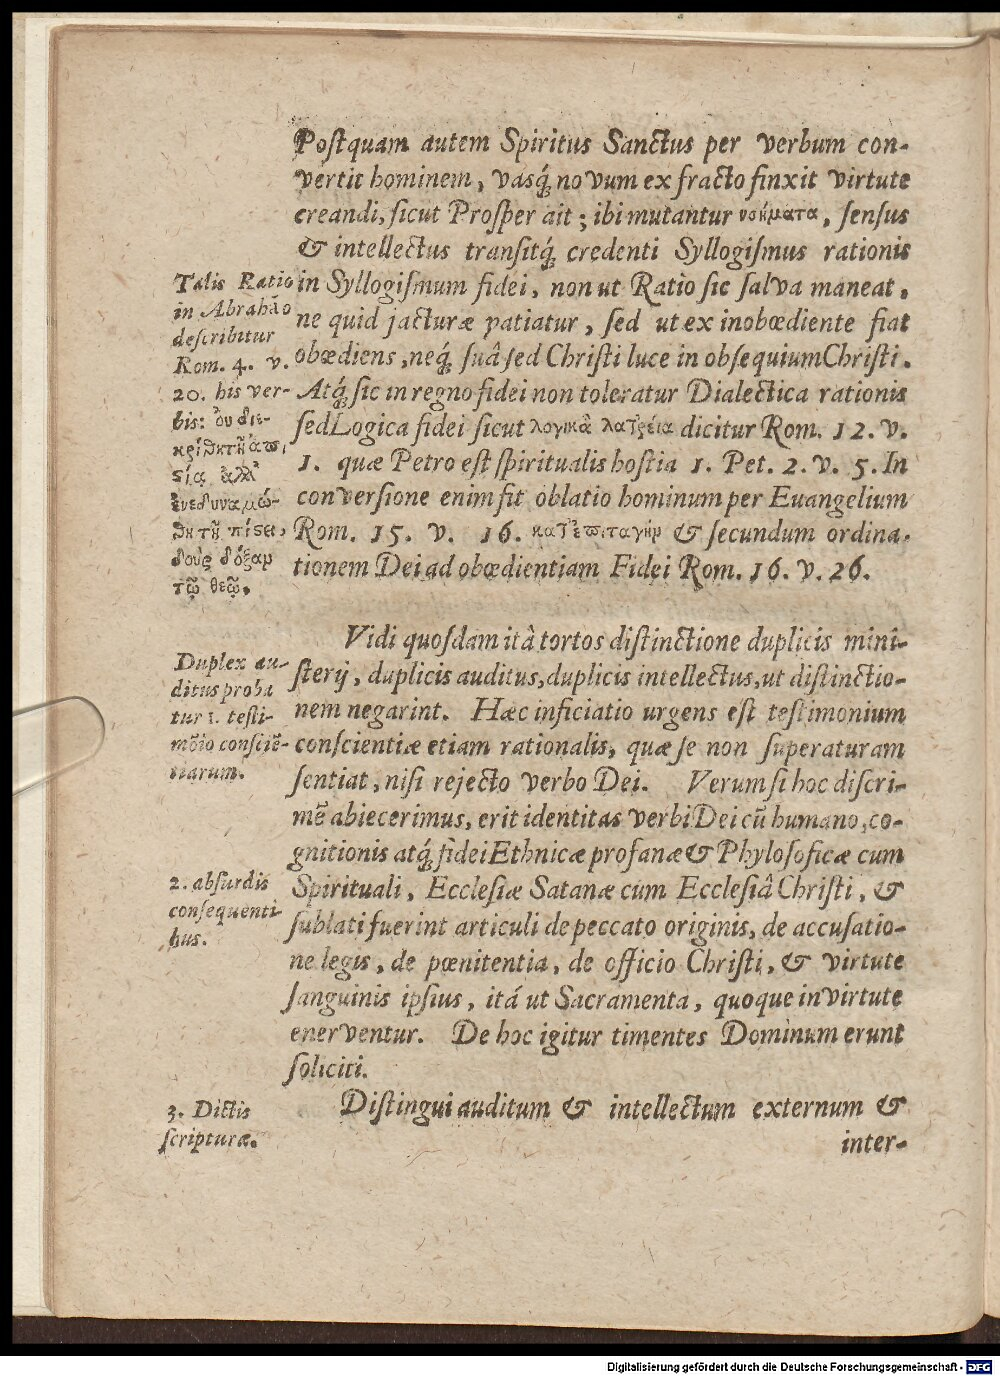 Poſtquam autem Spiritus Sanctus per verbum con-
vertit hominem, vasq́; novum ex fracto finxit virtute
creandi, ſicut Proſper ait; ibi mutantur νοήματα, ſenſus
& intellectus tranſitq́; credenti Syllogiſmus rationis
in Syllogiſmum fidei, non ut Ratio ſic ſalva maneat,
ne quid jacturæ patiatur, ſed ut ex inobœdiente fiat
obœdiens, neq́; ſuâ ſed Chriſti luce in obſequium Chriſti.
Atq́; ſic in regno fidei non toleratur Dialectica rationis
ſed Logica fidei ſicut λογικὰ λατρεία dicitur Rom. 12. v.
1. quæ Petro eſt ſpiritualis hoſtia 1. Pet. 2. v. 5. In
converſione enim fit oblatio hominum per Euangelium
Rom. 15. v. 16. κατ' ἐπιταγὴν & ſecundum ordina-
tionem Dei ad obœdientiam Fidei Rom. 16. v. 26.
Talis Ratio
in Abrahāo
deſcribitur
Rom. 4. v.
20. his ver-
bis: ὀυ διε-
κρίθη τῇ ἀπι-
ςίᾳ ἀλλ'
ἐνεδυναμώ-
θη τῇ πίςει,
δοὺς δόξαν
τῷ θεῷ.
Vidi quoſdam itâ tortos diſtinctione duplicis mini-
ſterij, duplicis auditus, duplicis intellectus, ut diſtinctio-
nem negarint. Hæc inficiatio urgens eſt teſtimonium
conſcientiæ etiam rationalis, quæ ſe non ſuperaturam
ſentiat, niſi rejecto verbo Dei. Verum ſi hoc diſcri-
mē abiecerimus, erit identitas verbi Dei cū humano, co-
gnitionis atq́; fidei Ethnicæ profanæ & Phyloſoficæ cum
Spirituali, Eccleſiæ Satanæ cum Eccleſiâ Chriſti, &
ſublati fuerint articuli de peccato originis, de accuſatio-
ne legis, de pœnitentia, de officio Chriſti, & virtute
ſanguinis ipſius, itá ut Sacramenta, quoque in virtute
enerventur. De hoc igitur timentes Dominum erunt
ſoliciti.
Duplex au-
ditus proba
tur 1. teſti-
mōio conſciē-
tiarum.
2. abſurdis
conſequenti-
bus.
Diſtingui auditum & intellectum externum &
inter-
3. Dictis
ſcripturæ.
Digitalisierung gefördert durch die Deutsche Forschungsgemeinschaft - DFG